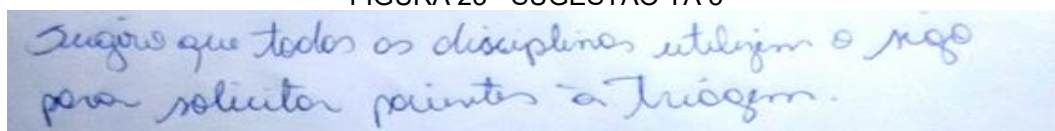 FIGURA 26 - SUGESTÃO TA 6
Sugiro que todas as disciplinas utilizem o siga
para solicitar pacientes à Triagem.